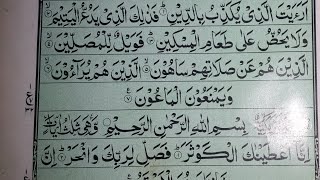 اَرَءَيْتَ الَّذِيْ يُكَذِّبُ بِالدِّيْنِ ۞ فَذٰلِكَ الَّذِيْ يَدُعُّ الْيَتِيْمَ ۞
وَلَا يَحُضُّ عَلٰى طَعَامِ الْمِسْكِيْنِ ۞ فَوَيْلٌ لِّلْمُصَلِّيْنَ ۞
الَّذِيْنَ هُمْ عَنْ صَلَاتِهِمْ سَاهُوْنَ ۞ الَّذِيْنَ هُمْ يُرَآءُوْنَ ۞
وَيَمْنَعُوْنَ الْمَاعُوْنَ ۞
بِسْمِ اللّٰهِ الرَّحْمٰنِ الرَّحِيْمِ وَهِيَ ثَلٰثُ اٰيَاتٍ
اِنَّآ اَعْطَيْنٰكَ الْكَوْثَرَ ۞ فَصَلِّ لِرَبِّكَ وَانْحَرْ ۞ اِنَّ